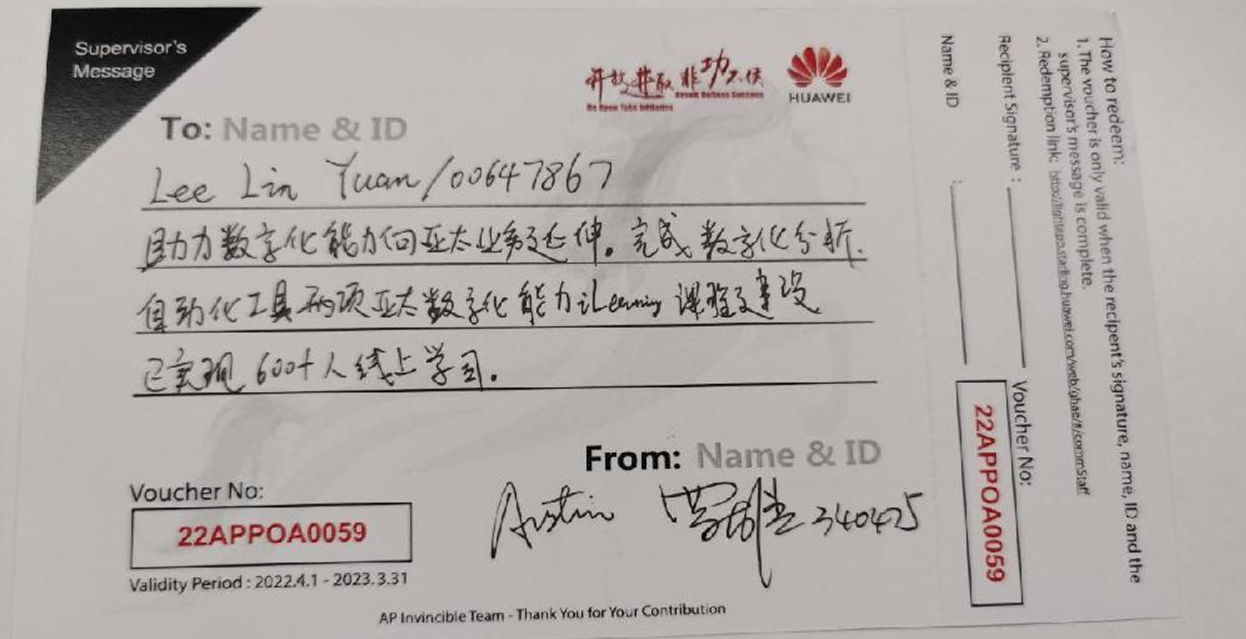 Supervisor's
Message
开放进取 非功不侯
Be Open Take Initiative
HUAWEI
To: Name & ID
Lee Lin Yuan/00647867
助力数字化能力向亚太业务延伸。完成数字化分析、
自动化工具两项亚太数字化能力iLearning 课程建设
已实现 600+人线上学习。
From: Name & ID
Austin 340425
Voucher No:
22APPOA0059
Validity Period : 2022.4.1 - 2023.3.31
AP Invincible Team - Thank You for Your Contribution
How to redeem:
1. The voucher is only valid when the recipent's signature, name, ID and the
supervisor's message is complete.
2. Redemption link:
Recipient Signature :
Name & ID :
Voucher No:
22APPOA0059